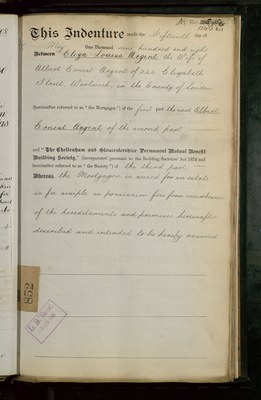 This Indenture made the fifteenth day of
May One Thousand nine hundred and eight
Between Eliza Louisa Argent the Wife of
Albert Ernest Argent of 220 Elizabeth
Street Woolwich in the County of London
(hereinafter referred to as "the Mortgagor") of the first part the said Albert
Ernest Argent of the second part
and "The Cheltenham and Gloucestershire Permanent Mutual Benefit
Building Society," incorporated pursuant to the Building Societies' Act 1874 and
(hereinafter referred to as "the Society") of the third part
Whereas the Mortgagor is seized for an estate
in fee simple in possession free from incumbrances
of the hereditaments and premises hereinafter
described and intended to be hereby assured
852